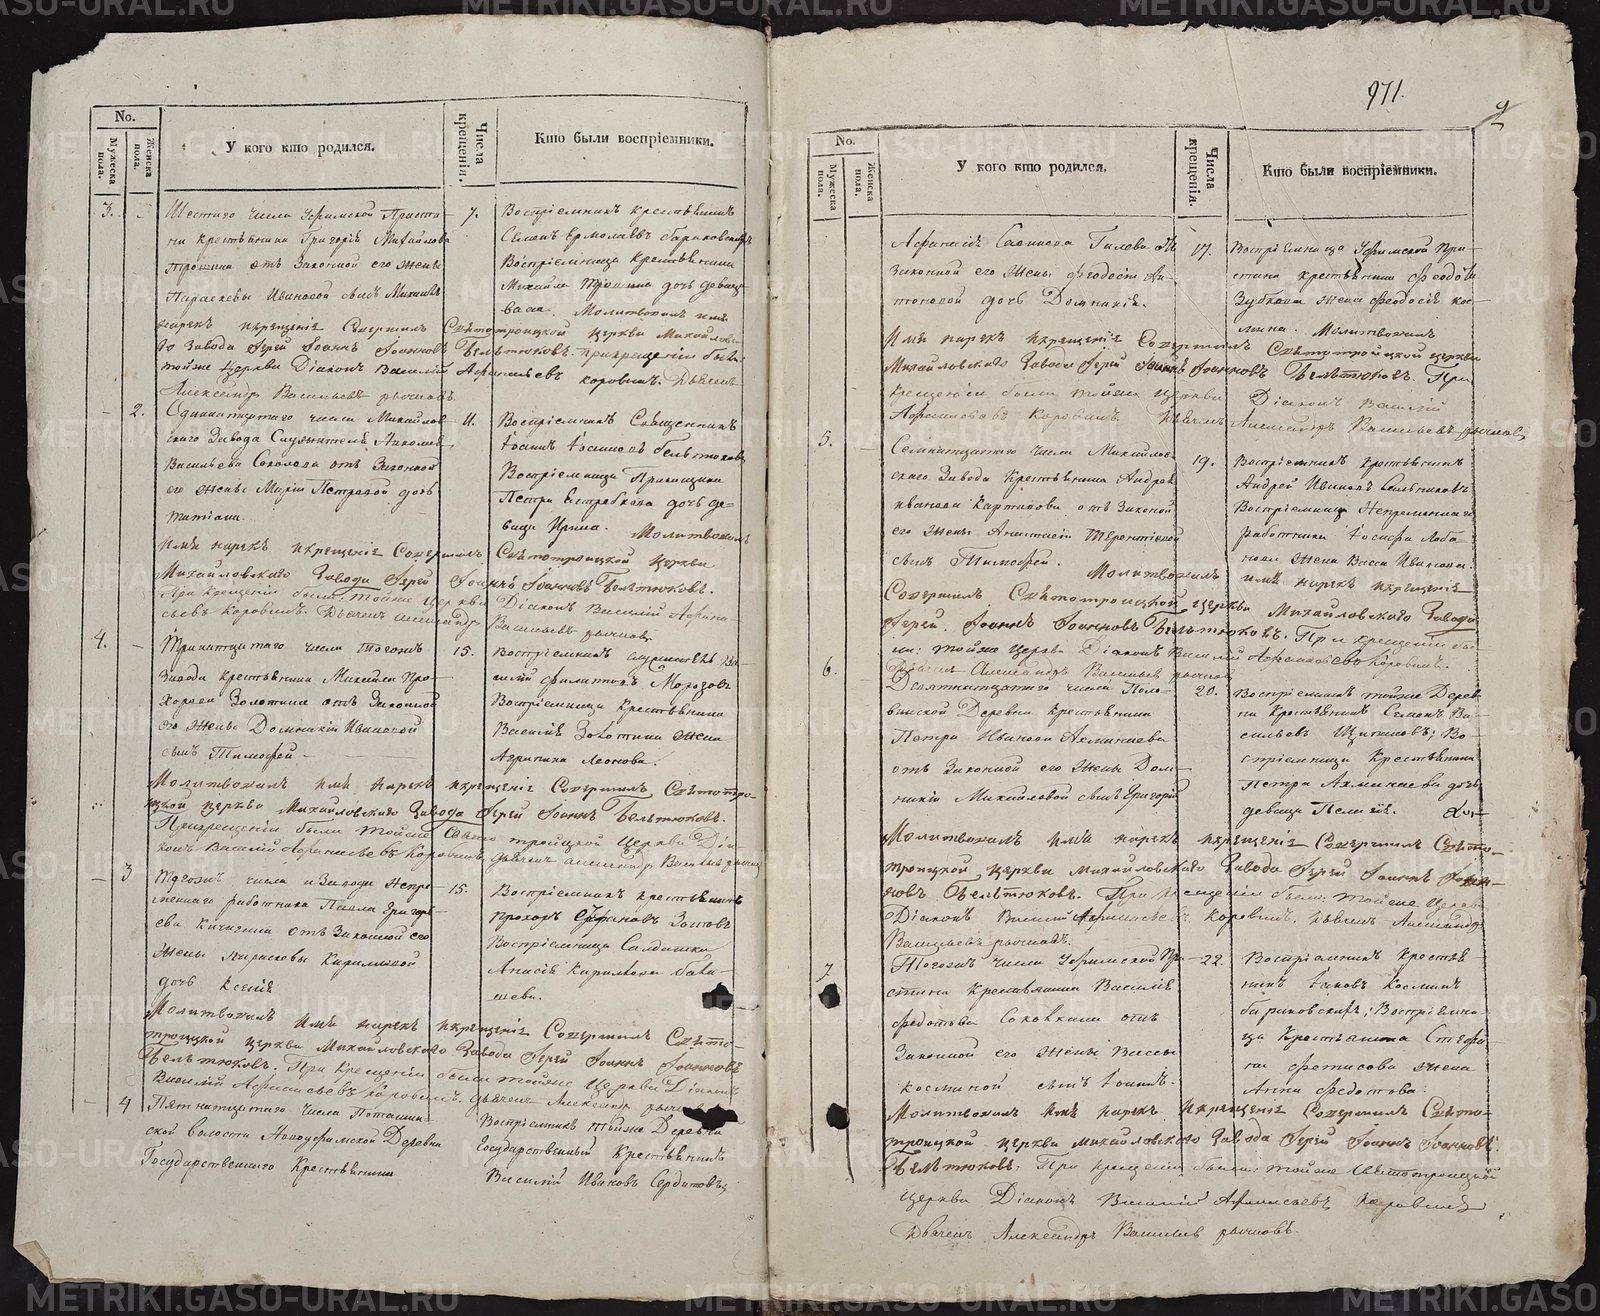 No.
Мужеска пола.
Женска пола.
У кого кто родился.
Числа крещенія.
Кто были воспріемники.
3. Шестаго числа Уфимской Приста- 7. Воспріемникъ крестьянинъ
ни крестьянина Григорія Михайлова Семенъ Ермолаевъ
Трошина отъ Законной его жены Воспріемница крестьянина
Параскевы Ивановой сынъ Михаилъ Михайла Трошина дочь девица
Васса. Молитвовалъ имя
нарекъ и крещеніе Совершилъ Святотроицкой церкви Михайловска-
го Завода Іерей Іоаннъ Іоанновъ Бельтюковъ. При крещеніи были
тойже Церкви Діаконъ Василій Афанасьевъ Коровинъ. Дьячекъ
Александръ Васильевъ Рычковъ.
2. Одинатцатаго числа Михайлов- 11. Воспріемникъ Священникъ
скаго Завода Служителя Николая Іоаннъ Іоанновъ Бельтюковъ
Васильева Соколова отъ Законной Воспріемница Прикащика
его жены Маріи Петровой дочь Петра дочь де-
Татіана. вица Ирина. Молитвовалъ
Имя нарекъ и крещеніе Совершилъ Святотроицкой церкви
Михайловскаго Завода Іерей Іоаннъ Іоанновъ Бельтюковъ.
При крещеніи были: тойже церкви Діаконъ Василій Афана-
сьевъ Коровинъ. Дьячекъ Александръ Васильевъ Рычковъ.
4. Тринатцатаго числа тогожъ 15. Воспріемникъ служитель Ва-
Завода крестьянина Михайла Про- силій Филатовъ Морозовъ
хорова Золотина отъ Законной Воспріемница Крестьянина
его жены Домникіи Ивановой Василія Золотина жена
сынъ Тимофей. Агрипина Леонова.
Молитвовалъ имя нарекъ и крещеніе Совершилъ Святотро-
ицкой церкви Михайловскаго Завода Іерей Іоаннъ Бельтюковъ.
При крещеніи были тойже Свято троицкой Церкви Діа-
конъ Василій Афанасьевъ Коровинъ, дьячекъ Александръ Васильевъ Рычковъ
3 Тогожъ числа и Завода Непре- 15. Воспріемникъ крестьянинъ
меннаго работника Павла Григорь- Прохоръ Зотовъ
ева Кичигина отъ Законной его Воспріемница Салдатка
жены Параскевы Кириловой Анисія Кирилова
дочь Ксенія шева.
Молитвовалъ имя нарекъ и крещеніе Совершилъ Свято-
троицкой церкви Михайловскаго Завода Іерей Іоаннъ Іоанновъ
Бельтюковъ. При крещеніи были тойже Церкви Діаконъ
Василій Афанасьевъ Коровинъ. дьячекъ Александръ Рычковъ
4 Пятнатцатаго числа Поташин- Воспріемникъ тойже Деревни
ской волости Новоуфимской Деревни Государственный Крестьянинъ
Государственнаго Крестьянина Василій Ивановъ Сердитовъ,
971.
No.
Мужеска пола.
Женска пола.
У кого кто родился.
Числа крещенія.
Кто были воспріемники.
Афанасія Савинова Гилева отъ 17. Воспріемница Уфимской При-
Законной его жены Феодосіи Ан- стани крестьянина Федота
тоновой дочь Домникія. Зубкова жена Феодосія Кос-
мина. Молитвовалъ
Имя нарекъ и крещеніе Совершилъ Святотроицкой церкви
Михайловскаго Завода Іерей Іоаннъ Іоанновъ Бельтюковъ. При
крещеніи были тойже Церкви Діаконъ Василій
Афанасьевъ Коровинъ. Дьячекъ Александръ Васильевъ Рычковъ
5. Семнатцатаго числа Михайлов- 19. Воспріемникъ крестьянинъ
скаго Завода Крестьянина Андрея Андрей Ивановъ
Иванова отъ Законной Воспріемница Непременнаго
его жены Анастасіи Терентіевой работника Іосифа Лоба-
сынъ Тимофей. Молитвовалъ нова жена Васса Иванова.
имя нарекъ и крещеніе
Совершилъ Святотроицкой церкви Михайловскаго Завода
Іерей Іоаннъ Іоанновъ Бельтюковъ. При крещеніи бы-
ли: тойже Церкви Діаконъ Василій Афанасьевъ Коровинъ.
Дьячекъ Александръ Васильевъ Рычковъ
6. Девятнатцатаго числа Поло- 20. Воспріемникъ тойже Дерев-
винской Деревни крестьянина ни Крестьянинъ Семенъ Ва-
Петра Иванова Ахминеева сильевъ Щипановъ; Во-
отъ Законной его жены Дом- спріемница Крестьянина
никіи Михайловой сынъ Григорій Петра Ахминеева дочь
девица Пелагія.
Молитвовалъ имя нарекъ и крещеніе Совершилъ Свято-
троицкой церкви Михайловскаго Завода Іерей Іоаннъ Іоан-
новъ Бельтюковъ. При крещеніи были: тойже Церкви
Діаконъ Василій Афанасьевъ Коровинъ. Дьячекъ Александръ
Васильевъ Рычковъ.
7. Тогожъ числа Уфимской При- 22. Воспріемникъ Крестья-
стани Крестьянина Василія нинъ Іаковъ Косминъ
Федотова Соковкина отъ Воспріемни-
Законной его жены Вассы ца Крестьянина Стефа-
Косминой сынъ Іоаннъ. на Фетисова жена
Анна Федотова.
Молитвовалъ имя нарекъ и крещеніе Совершилъ Свято-
троицкой церкви Михайловскаго Завода Іерей Іоаннъ Іоанновъ
Бельтюковъ. При крещеніи были: тойже Святотроицкой
Церкви Діаконъ Василій Афанасьевъ Коровинъ
Дьячекъ Александръ Васильевъ Рычковъ
METRIKI.GASO-URAL.RU